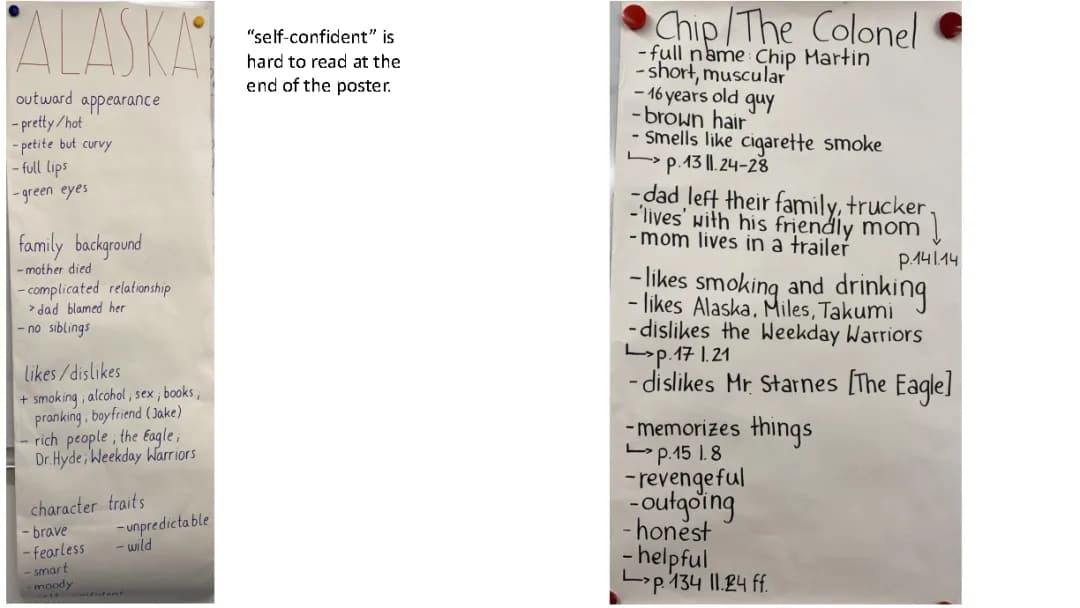 ALASKA
outward appearance
- pretty/hot
- petite but curvy
- full lips
- green eyes
family background
- mother died
- complicated relationship
> dad blamed her
- no siblings
likes/dislikes
+ smoking, alcohol, sex, books,
pranking, boyfriend (Jake)
- rich people, the Eagle,
Dr. Hyde, Weekday Warriors
character traits
- brave - unpredictable
- fearless - wild
- smart
- moody
self-confident
"self-confident" is
hard to read at the
end of the poster.
Chip/The Colonel
- full name: Chip Martin
- short, muscular
- 16 years old guy
- brown hair
- smells like cigarette smoke
↳ p.13 ll.24-28
- dad left their family, trucker
- 'lives' with his friendly mom
- mom lives in a trailer
p.14 l.14
- likes smoking and drinking
- likes Alaska, Miles, Takumi
- dislikes the Weekday Warriors
↳ p.17 l.21
- dislikes Mr. Starnes [The Eagle]
- memorizes things
↳ p.15 l.8
- revengeful
- outgoing
- honest
- helpful
↳ p.134 ll.24 ff.